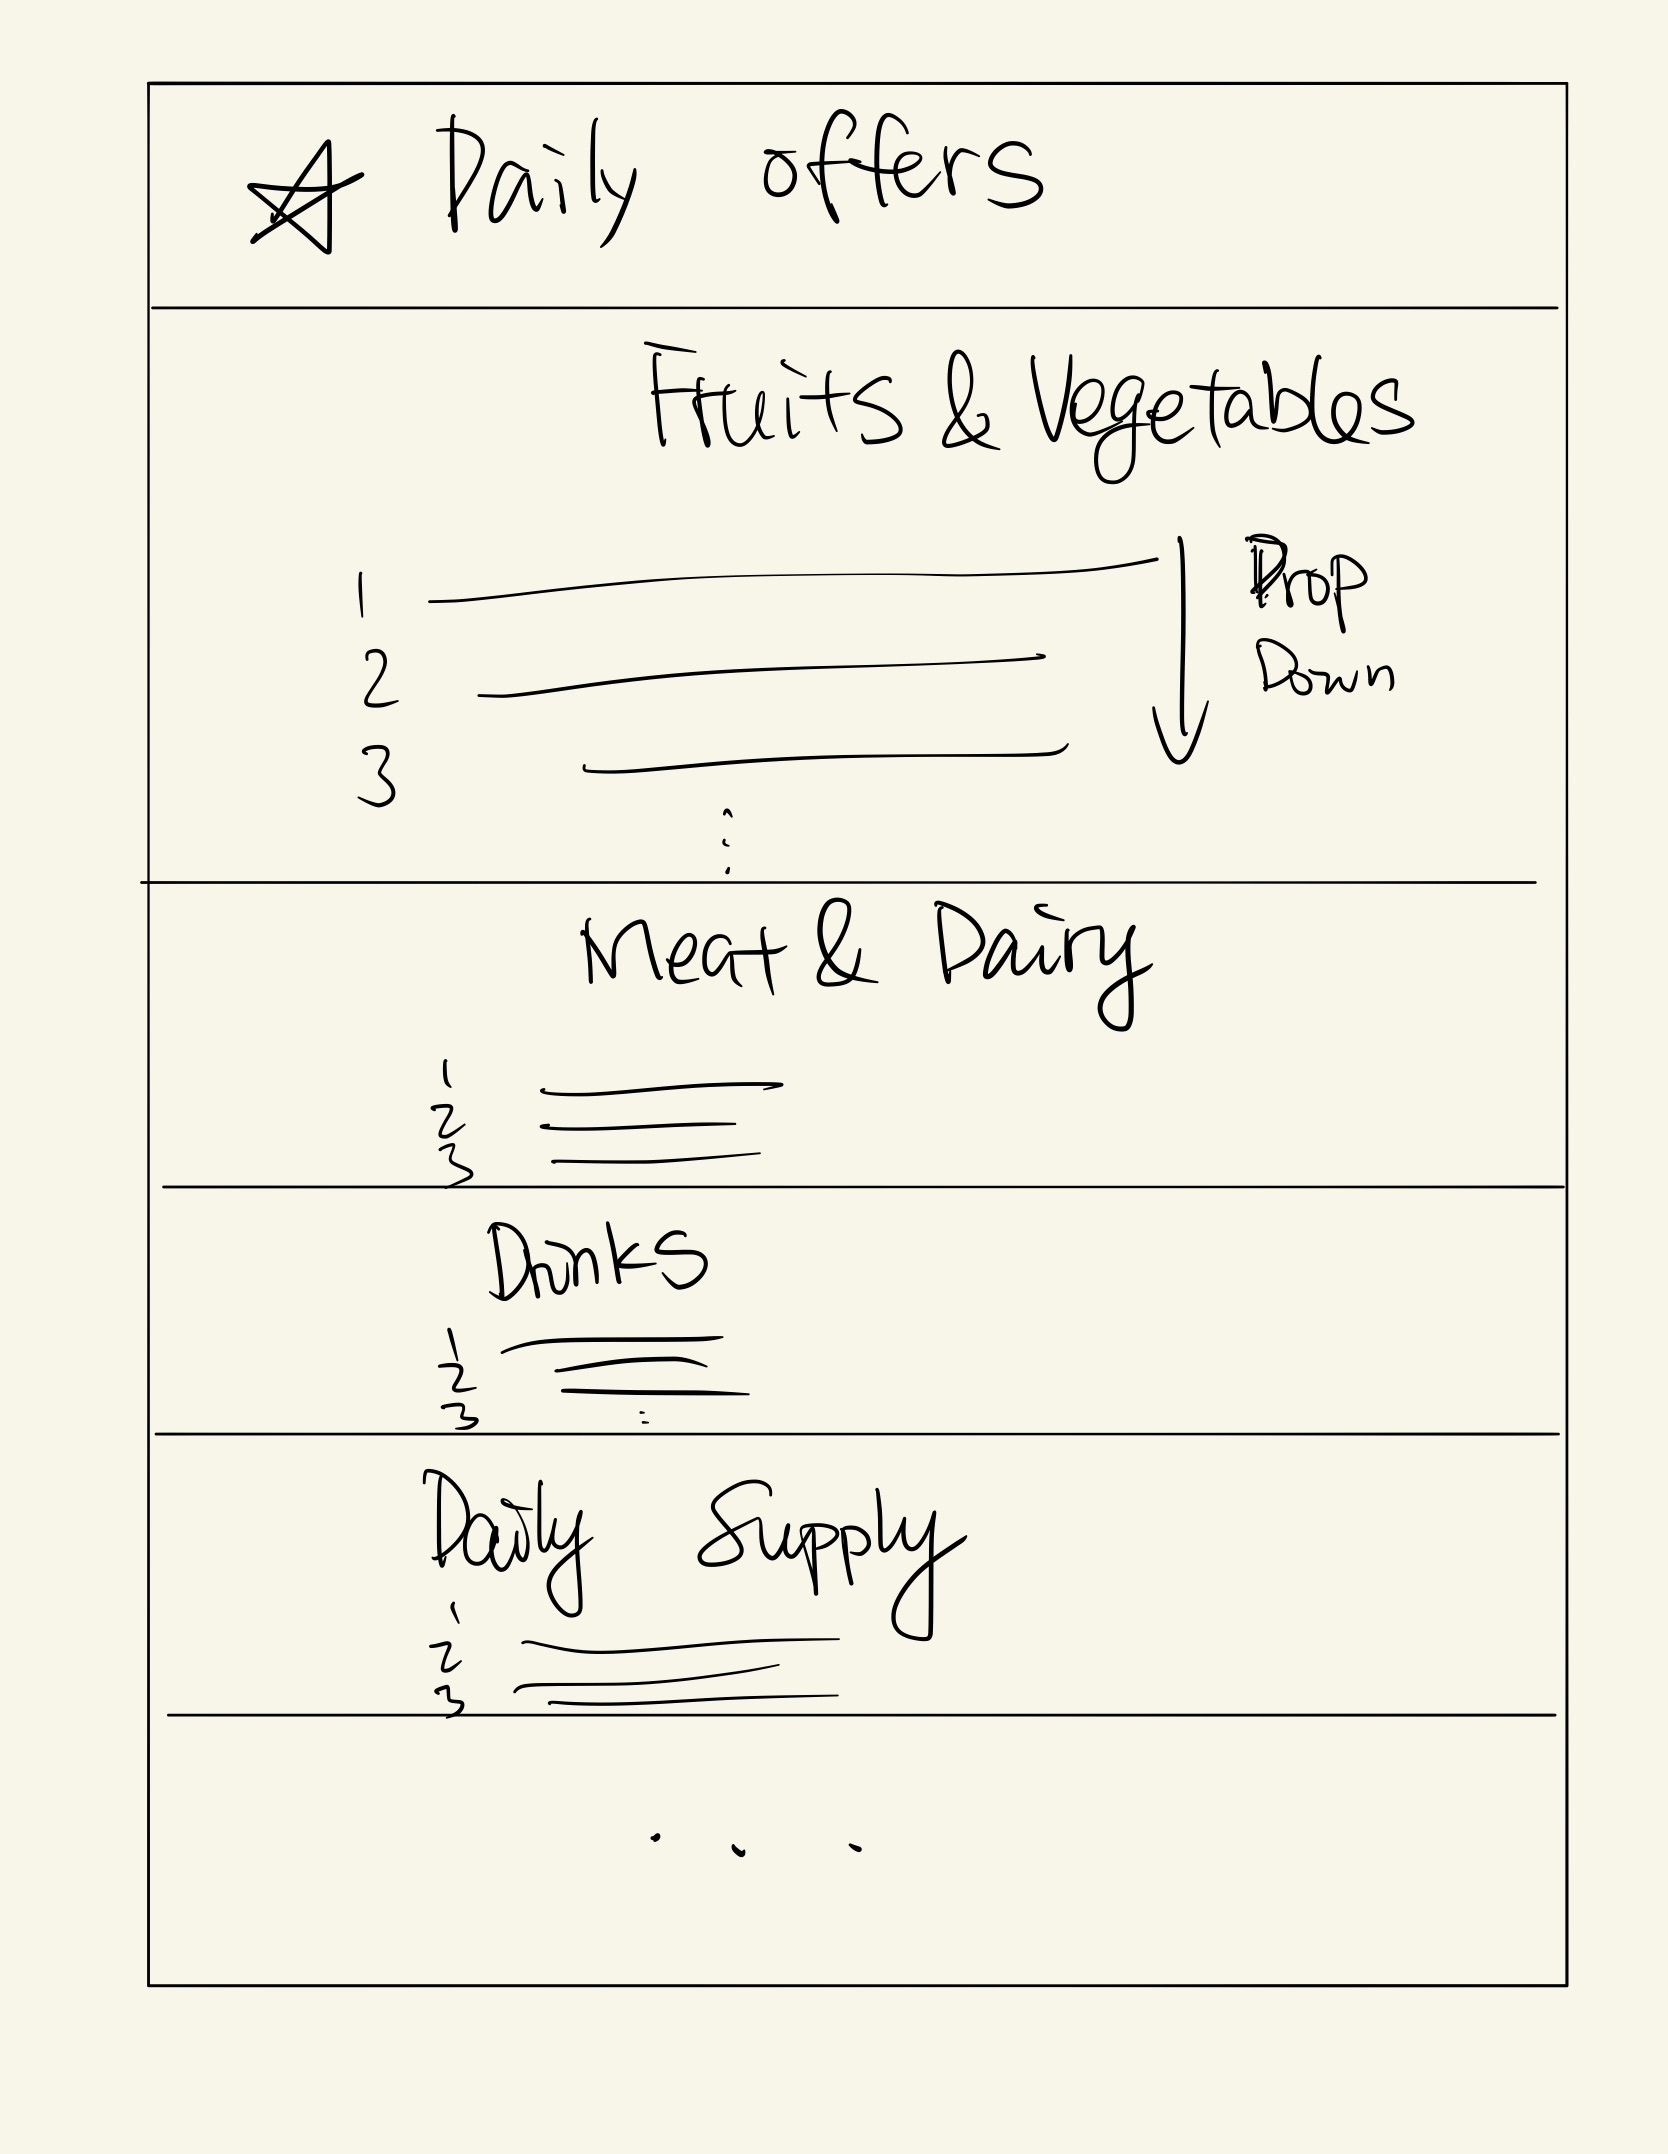 Daily offers
Fruits & Vegetables
1
Drop
2
Down
3
Meat & Dairy
1
2
3
Drinks
1
2
3
Daily Supply
1
2
3
. . .